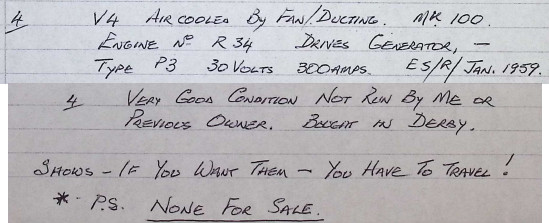 4 V4 AIR COOLED BY FAN/DUCTING. MK 100.
ENGINE No R 34 DRIVES GENERATOR, —
TYPE P3 30 VOLTS 300 AMPS. ES/R/JAN. 1959.
4 VERY GOOD CONDITION NOT RUN BY ME OR
PREVIOUS OWNER. BOUGHT IN DERBY.
SHOWS - IF YOU WANT THEM - YOU HAVE TO TRAVEL!
* P.S. NONE FOR SALE.